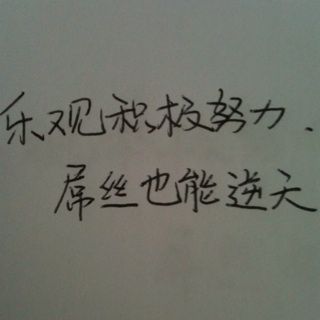 乐观积极努力、
屌丝也能逆天